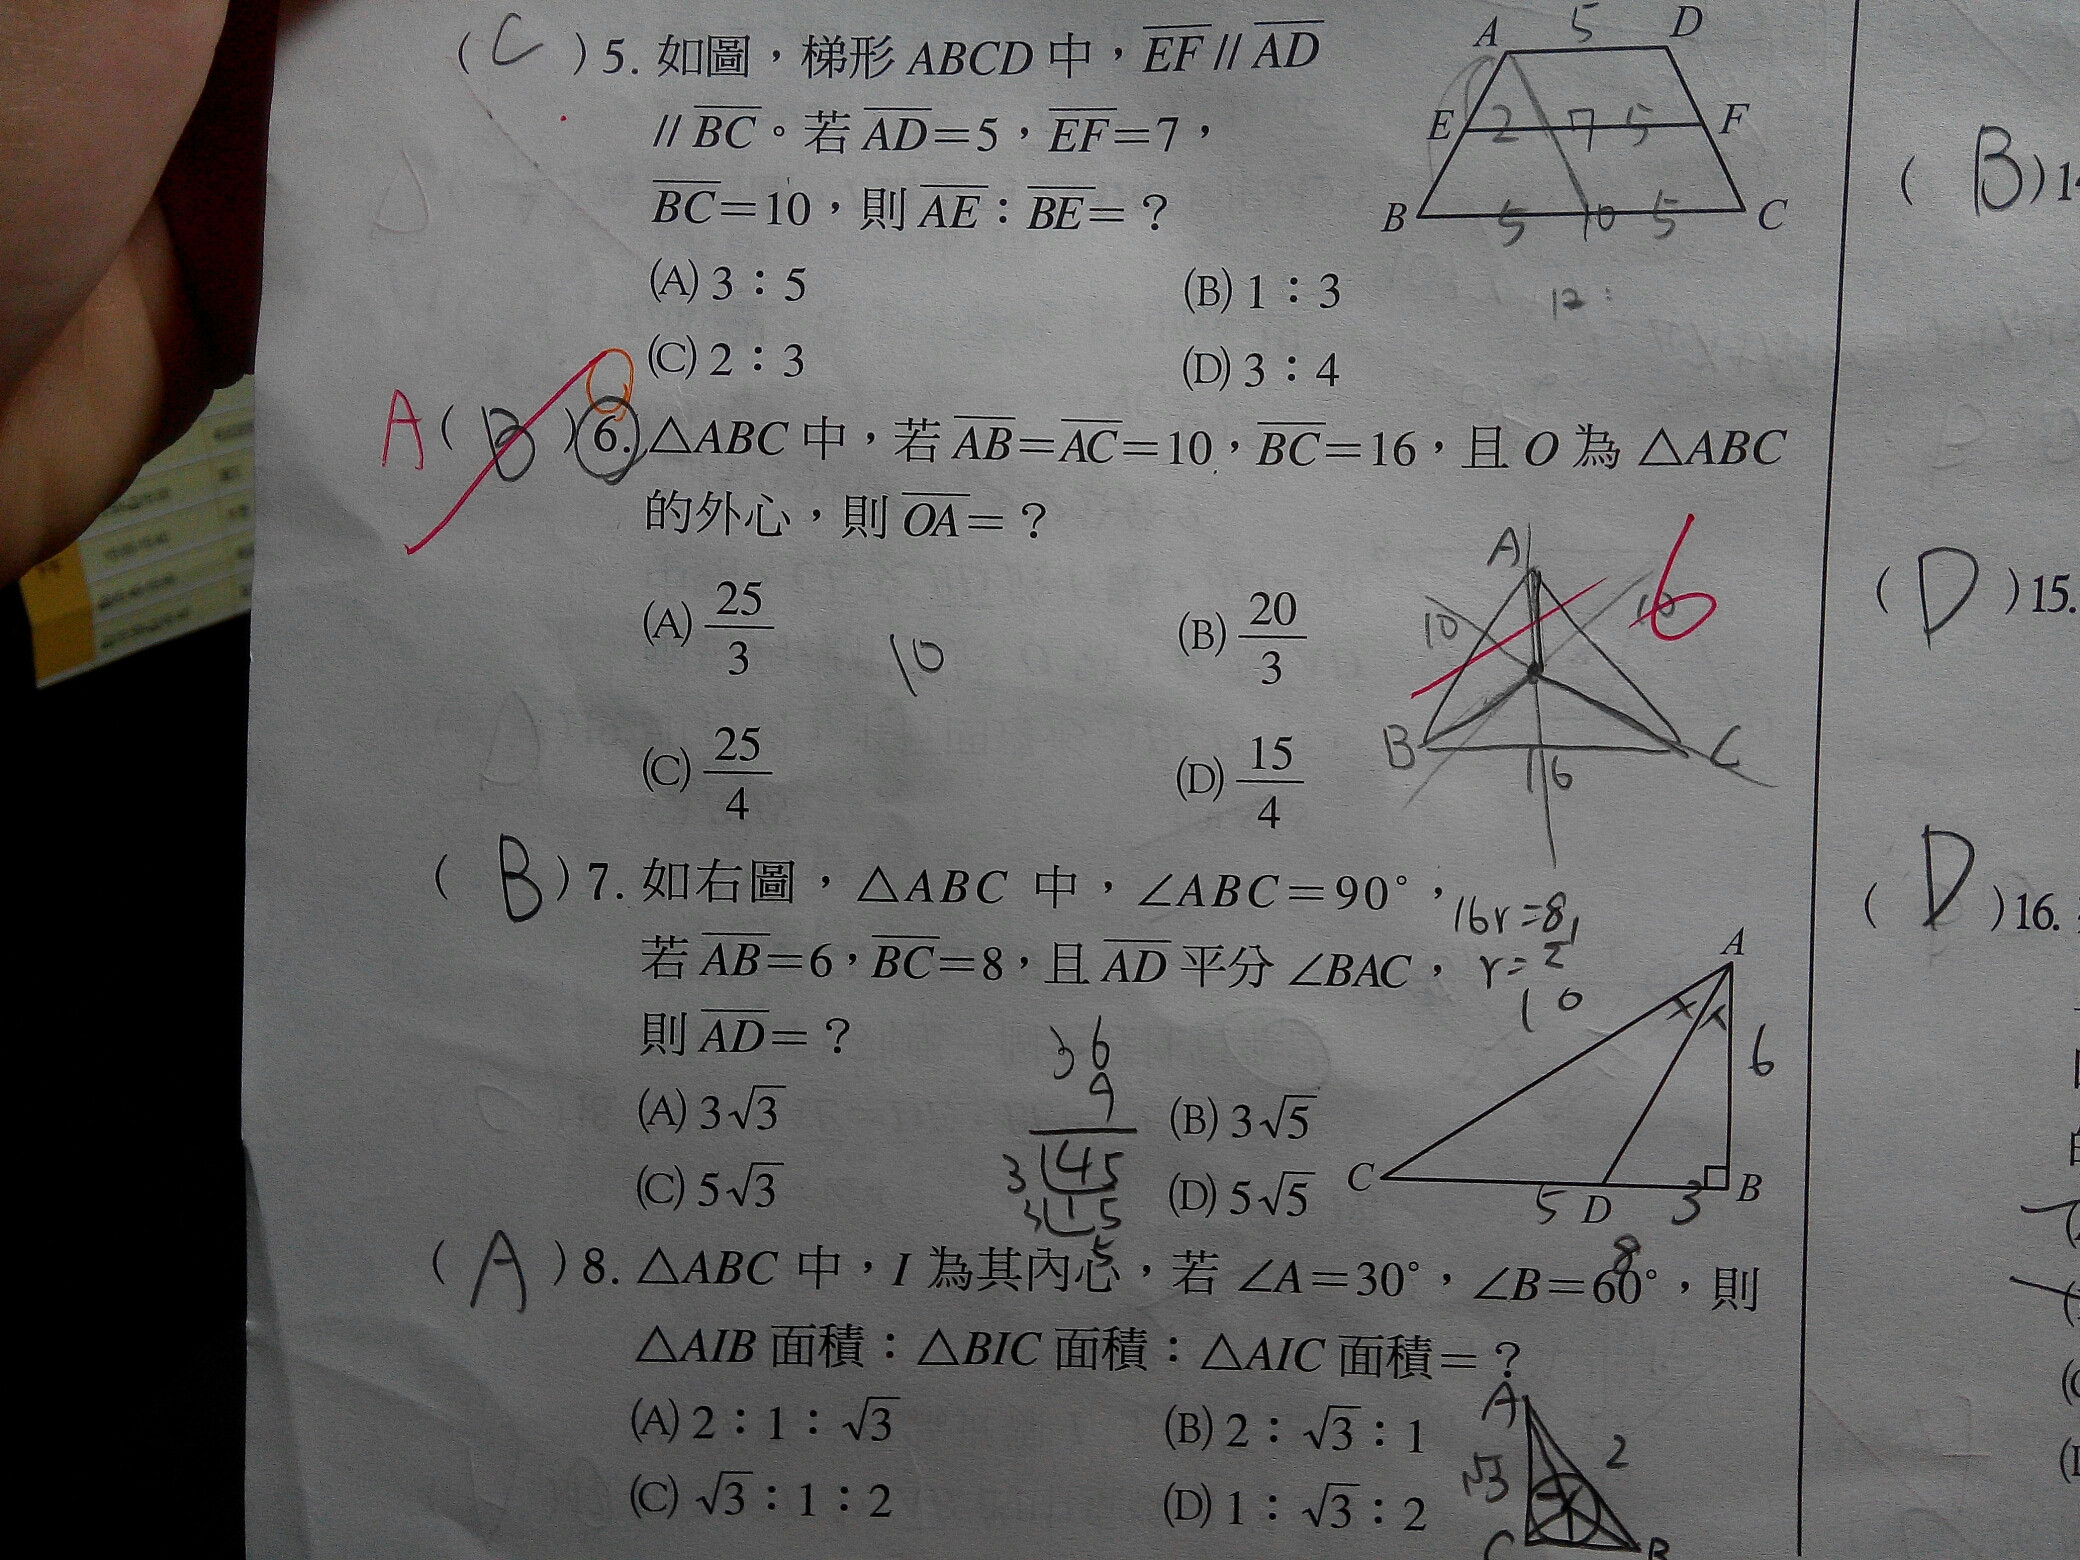 (C)5. 如圖，梯形 ABCD 中，EF // AD
// BC。若 AD=5，EF=7，
BC=10，則 AE：BE=？
(A) 3：5 (B) 1：3
(C) 2：3 (D) 3：4
A D E F B C
5
2 7 5
5 10 5
12:
A (B)6. △ABC 中，若 AB=AC=10，BC=16，且 O 為 △ABC
的外心，則 OA=？
(A) 25/3 (B) 20/3
10
(C) 25/4 (D) 15/4
A 6
10
B C
16
(B)7. 如右圖，△ABC 中，∠ABC=90°，
16r=8
若 AB=6，BC=8，且 AD 平分 ∠BAC，
r=1/2
10
則 AD=？
36
9
(A) 3√3 (B) 3√5
3 45
(C) 5√3 (D) 5√5
3 15
5
A
6
C D B
5 3
8
(A)8. △ABC 中，I 為其內心，若 ∠A=30°，∠B=60°，則
△AIB 面積：△BIC 面積：△AIC 面積=？
(A) 2：1：√3 (B) 2：√3：1
(C) √3：1：2 (D) 1：√3：2
A
√3 2
C B
(B)14
(D)15.
(D)16.